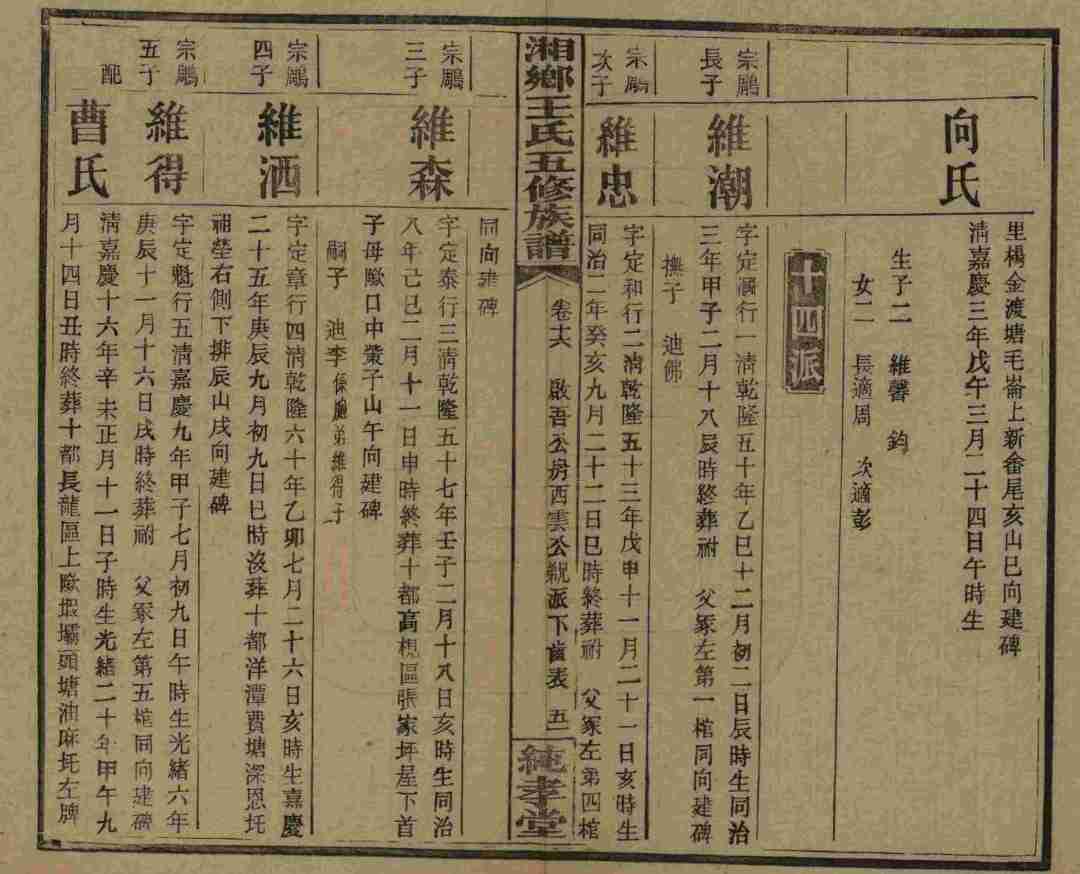 里楊金渡塘毛崙上新畬尾亥山巳向建碑
向氏
淸嘉慶三年戊午三月二十四日午時生
生子二　維馨　鈞
女二　長適周　次適彭
十四派
宗鵰長子
維潮
字定涸行一淸乾隆五十年乙巳十二月初二日辰時生同治
三年甲子二月十八辰時終葬祔　父冢左第一棺同向建碑
撫子　迪佛
宗鵰次子
維忠
字定和行二淸乾隆五十三年戊申十一月二十一日亥時生
同治二年癸亥九月二十二日巳時終葬祔　父冢左第四棺
湘鄉王氏五修族譜
卷十六　啟吾公房西雲公派下齒表　五一
純孝堂
同向建碑
宗鵰三子
維森
字定泰行三淸乾隆五十七年壬子二月十八日亥時生同治
八年己巳二月十一日申時終葬十都高視區張家坪屋下首
子母歐口中螢子山午向建碑
嗣子　迪李係胞弟維得子
宗鵰四子
維洒
字定章行四淸乾隆六十年乙卯七月二十六日亥時生嘉慶
二十五年庚辰九月初九日巳時沒葬十都洋潭費塘深恩坵
祖塋右側下排辰山戌向建碑
宗鵰五子
維得
字定魁行五淸嘉慶九年甲子七月初九日午時生光緒六年
庚辰十一月十六日戌時終葬祔　父冢左第五棺同向建碑
配
曹氏
淸嘉慶十六年辛未正月十一日子時生光緖二十年甲午九
月十四日丑時終葬十都長龍區上歐蝦壩頭塘油麻坵左牌